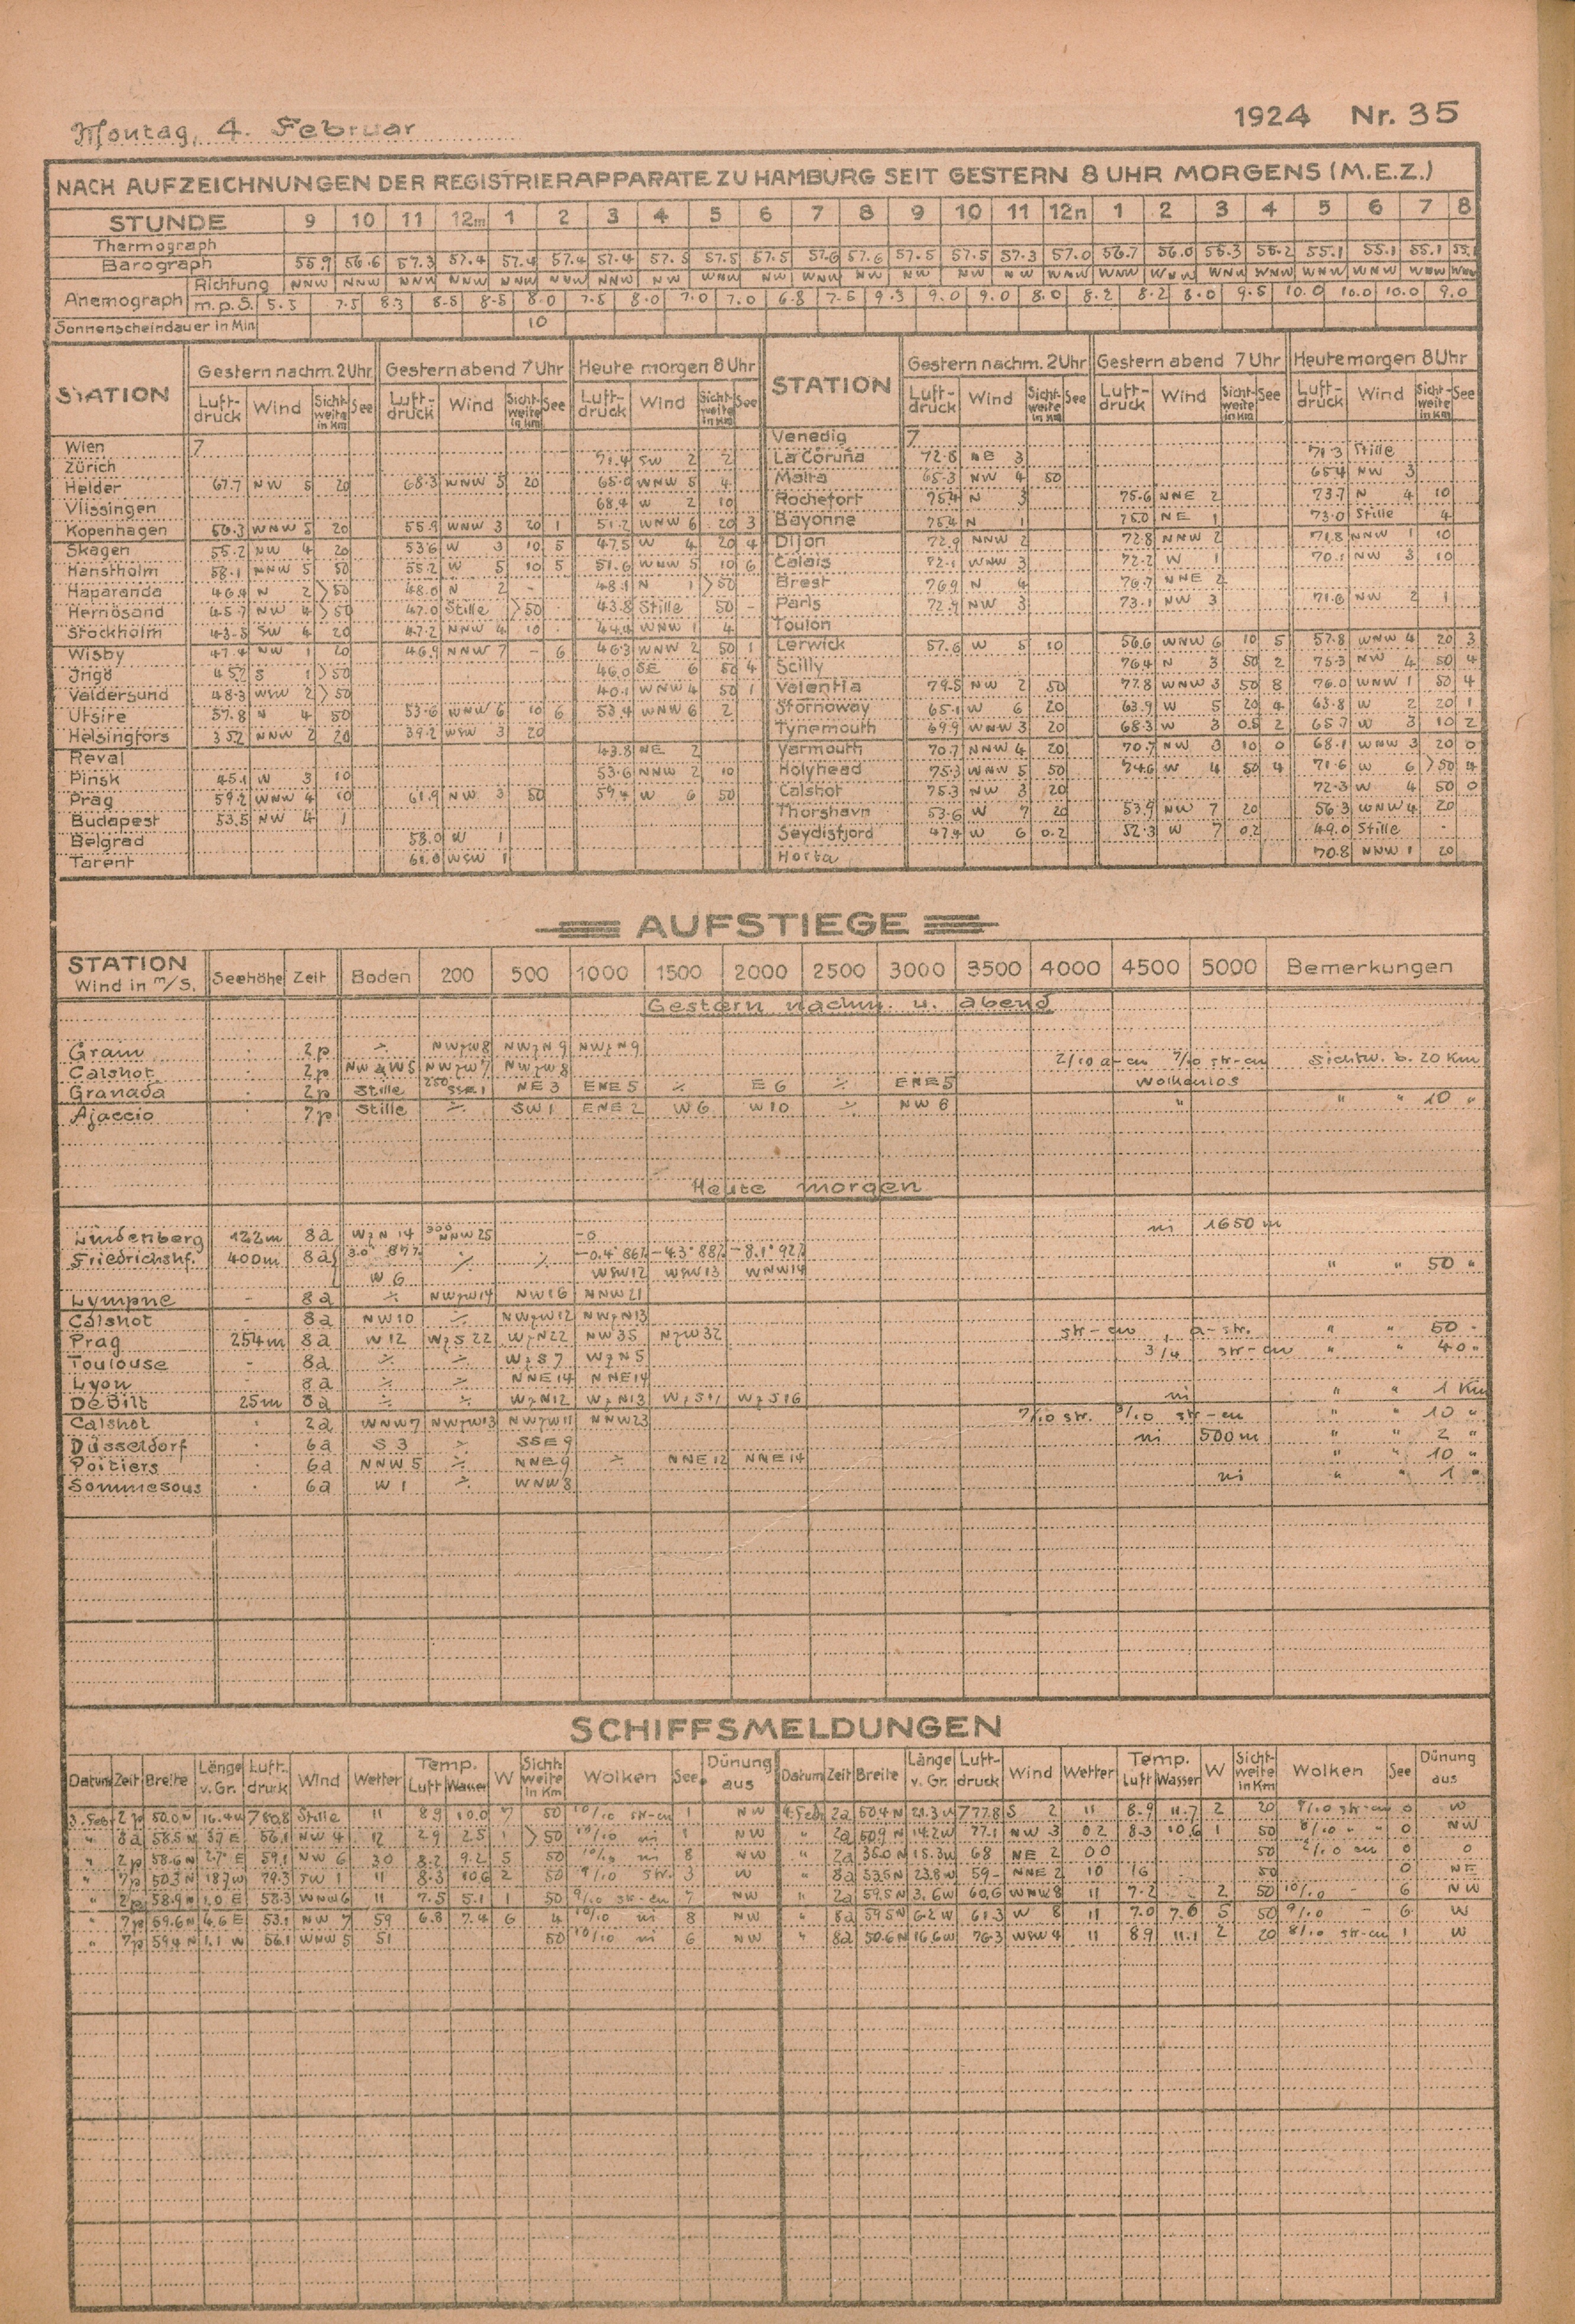 Montag, 4. Februar 1924 Nr. 35
NACH AUFZEICHNUNGEN DER REGISTRIERAPPARATE ZU HAMBURG SEIT GESTERN 8 UHR MORGENS (M.E.Z.)
STUNDE 9 10 11 12m 1 2 3 4 5 6 7 8 9 10 11 12n 1 2 3 4 5 6 7 8
Thermograph
Barograph 55.9 56.6 57.3 57.4 57.4 57.4 57.4 57.5 57.5 57.5 57.6 57.6 57.5 57.5 57.3 57.0 56.7 56.0 55.3 55.2 55.1 55.1 55.1 55.1
Anemograph Richtung NNW NNW NNW NNW NNW NNW NNW NW WNW NW WNW NW NW NW NW WNW WNW WNW WNW WNW WNW WNW WNW WNW
m.p.S. 5.5 7.5 8.3 8.5 8.5 8.0 7.5 8.0 7.0 7.0 6.8 7.5 9.3 9.0 9.0 8.0 8.2 8.2 8.0 9.5 10.0 10.0 10.0 9.0
Sonnenscheindauer in Min 10
STATION Gestern nachm. 2 Uhr Gestern abend 7 Uhr Heute morgen 8 Uhr STATION Gestern nachm. 2 Uhr Gestern abend 7 Uhr Heute morgen 8 Uhr
Luftdruck Wind Sichtweite in Km See Luftdruck Wind Sichtweite in Km See Luftdruck Wind Sichtweite in Km See Luftdruck Wind Sichtweite in Km See Luftdruck Wind Sichtweite in Km See Luftdruck Wind Sichtweite in Km See
Wien 7 Venedig 7
Zürich 71.4 SW 2 2 La Coruña 72.8 NE 3 71.3 Stille
Helder 67.7 NW 5 20 68.3 WNW 5 20 65.0 WNW 5 4 Malta 65.3 NW 4 50 65.4 NW 3
Vlissingen 68.4 W 2 10 Rochefort 75.4 N 3 75.6 NNE 2 73.7 N 4 10
Kopenhagen 56.3 WNW 5 20 55.9 WNW 3 20 1 51.2 WNW 6 20 3 Bayonne 75.4 N 1 75.0 NE 1 73.0 Stille 4
Skagen 55.2 NW 4 20 53.6 W 3 10 5 47.5 W 4 20 4 Dijon 72.9 NNW 2 72.8 NNW 2 71.8 NNW 1 10
Hanstholm 58.1 NNW 5 50 55.2 W 5 10 5 51.6 WNW 5 10 6 Calais 72.1 WNW 3 72.2 W 1 70.1 NW 3 10
Haparanda 46.4 N 2 >50 48.0 N 2 - 48.1 N 1 >50 Brest 76.9 N 4 76.7 NNE 2
Hernösand 45.7 NW 4 >50 47.0 Stille >50 43.8 Stille 50 - Paris 72.9 NW 3 73.1 NW 3 71.6 NW 2 1
Stockholm 43.5 SW 4 20 47.2 NNW 4 10 44.4 WNW 1 4 Toulon
Wisby 47.4 NW 1 20 46.9 NNW 7 - 6 46.3 WNW 2 50 1 Lerwick 57.6 W 5 10 56.6 WNW 6 10 5 57.8 WNW 4 20 3
Ingö 45.2 S 1 >50 46.0 SE 6 50 4 Scilly 76.4 N 3 50 2 75.3 NW 4 50 4
Valdersund 48.3 WSW 2 >50 40.1 WNW 4 50 1 Valentia 79.5 NW 2 50 77.8 WNW 3 50 8 76.0 WNW 1 50 4
Utsire 57.8 N 4 50 53.6 WNW 6 10 6 53.4 WNW 6 2 Stornoway 65.1 W 6 20 63.9 W 5 20 4 63.8 W 2 20 1
Helsingfors 35.2 NNW 2 20 39.2 WSW 3 20 Tynemouth 69.9 WNW 3 20 68.3 W 3 0.5 2 65.7 W 3 10 2
Reval 43.8 NE 2 Yarmouth 70.7 NNW 4 20 70.7 NW 3 10 0 68.1 WNW 3 20 0
Pinsk 45.1 W 3 10 53.6 NNW 2 10 Holyhead 75.3 WNW 5 50 74.6 W 4 50 4 71.6 W 6 >50 4
Prag 59.2 WNW 4 10 61.9 NW 3 50 59.4 W 6 50 Calshot 75.3 NW 3 20 72.3 W 4 50 0
Budapest 53.5 NW 4 1 Thorshavn 53.6 W 7 20 53.9 NW 7 20 56.3 WNW 4 20
Belgrad 58.0 W 1 Seydisfjord 47.4 W 6 0.2 52.3 W 7 0.2 49.0 Stille
Tarent 61.0 WSW 1 Horta 70.8 NNW 1 20
AUFSTIEGE
STATION Wind in m/S. Seehöhe Zeit Boden 200 500 1000 1500 2000 2500 3000 3500 4000 4500 5000 Bemerkungen
Gestern nachm. u. abend
Grain 2p NWzW8 NWzN9 NWzN9
Calshot 2p NW W5 NWzW7 NWzW8 2/10 a-cu 7/10 str-cu Sichtw. b. 20 Km
Granada 2p Stille 250 SSE1 NE 3 ENE 5 E 6 ENE 5 wolkenlos
Ajaccio 7p Stille SW 1 ENE 2 W 6 W 10 NW 8 " " " 10 "
Heute morgen
Lindenberg 122m 8a WzN 14 300 NNW 25 -0 ni 1650 m
Friedrichshf. 400m 8a 3.0° 87% -0.4° 86% -4.3° 88% -8.1° 92%
W 6 WSW12 WSW13 WNW14 " " 50 "
Lympne - 8a NWzW14 NW16 NNW 21
Calshot - 8a NW 10 NWzW12 NWzN13
Prag 254m 8a W 12 WzS 22 WzN22 NW 35 NzW32 str-cu, a-str. " " 50 "
Toulouse - 8a WzS 7 WzN 5 3/4 str-cu " " 40 "
Lyon - 8a NNE14 NNE14
De Bilt 25m 8a WzN12 WzN13 WzS11 WzS16 ni " " 1 Km
Calshot 2a WNW7 NWzW13 NWzW11 NNW23 7/10 str. 3/10 str-cu " " 10 "
Düsseldorf 6a S 3 SSE 9 ni 500m " " 2 "
Poitiers 6a NNW 5 NNE 9 NNE 12 NNE 14 " " 10 "
Sommesous 6a W 1 WNW8 ni " " 1 "
SCHIFFSMELDUNGEN
Datum Zeit Breite Länge v. Gr. Luftdruck Wind Wetter Temp. Luft Wasser W Sichtweite in Km Wolken See Dünung aus Datum Zeit Breite Länge v. Gr. Luftdruck Wind Wetter Temp. Luft Wasser W Sichtweite in Km Wolken See Dünung aus
3. Feb. 2p 50.0 N 16.4 W 780.8 Stille 11 8.9 10.0 7 50 10/10 str-cu 1 NW 4. Feb. 2a 50.4 N 21.3 W 777.8 S 2 11 8.9 11.7 2 20 9/10 str-cu 0 W
" 8a 58.5 N 3.7 E 56.1 NW 4 12 2.9 2.5 1 >50 10/10 ni 1 NW " 2a 50.9 N 14.2 W 77.1 NW 3 02 8.3 10.6 1 50 8/10 " " 0 NW
" 2p 58.6 N 2.7 E 59.1 NW 6 30 8.2 9.2 5 50 10/10 ni 8 NW " 2a 36.0 N 15.3 W 68 NE 2 00 50 2/10 cu 0 0
" 7p 50.3 N 18.7 W 79.3 SW 1 11 8.3 10.6 2 50 9/10 str. 3 W " 8a 53.5 N 23.8 W 59 - NNE 2 10 16 50 0 NE
" 2p 58.9 N 1.0 E 58.3 WNW6 11 7.5 5.1 1 50 9/10 str-cu 7 NW " 2a 59.5 N 3.6 W 60.6 WNW8 11 7.2 2 50 10/10 - 6 NW
" 7p 59.6 N 4.6 E 53.1 NW 7 59 6.8 7.4 6 4 10/10 ni 8 NW " 8a 59.5 N 6.2 W 61.3 W 8 11 7.0 7.6 5 50 9/10 - 6 W
" 7p 59.4 N 1.1 W 56.1 WNW 5 51 50 10/10 ni 6 NW " 8a 50.6 N 16.6 W 76.3 WSW 4 11 8.9 11.1 2 20 8/10 str-cu 1 W